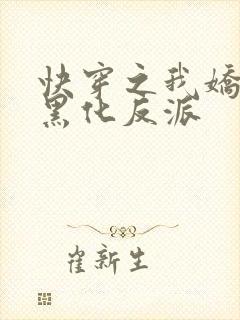 快穿之我嬌
黑化反派
崔新生